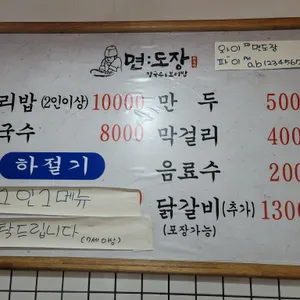 면:도장
칼국수&보리밥
와이파이 면도장
ab1234567
리밥 (2인이상) 10000
국수 8000
하절기
1인 1메뉴
탁드립니다 (7세이상)
만 두 500
막걸리 400
음료수 200
닭갈비 (추가) 1300
(포장가능)